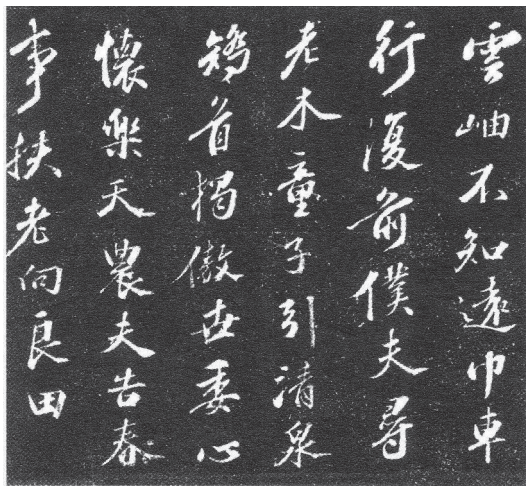 雲岫不知遠巾車
行復前僕夫尋
老木童子引清泉
矯首獨傲世委心
懷樂天農夫告春
事扶老向良田